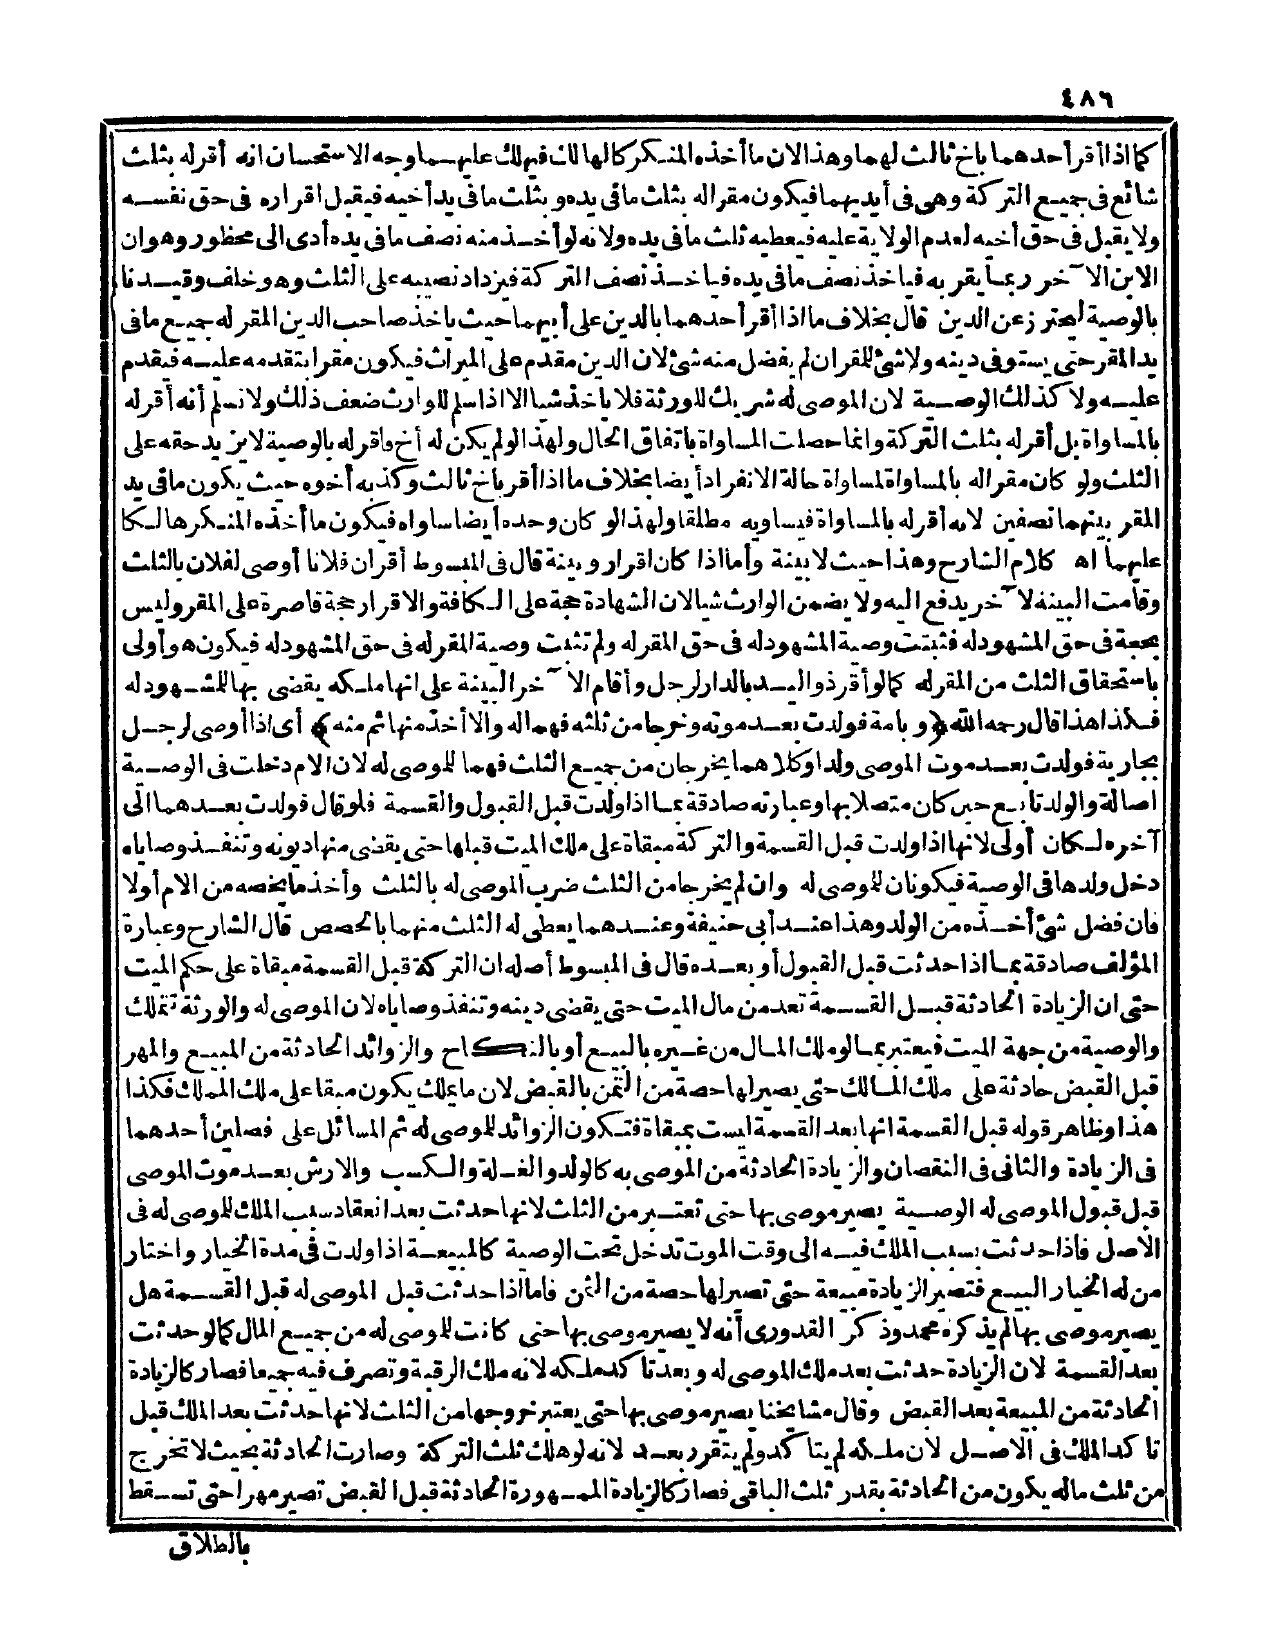 ٤٨٦
كما اذا أقر أحدهما باخ ثالث لهما وهذا لان ما أخذه المنكر كالهالك فيهلك عليهما وجه الاستحسان انه أقر له بثلث
شائع فى جميع التركة وهى فى أيديهما فيكون مقرا له بثلث ما فى يده وبثلث ما فى يد أخيه فيقبل اقراره فى حق نفسه
ولا يقبل فى حق أخيه لعدم الولاية عليه فيعطيه ثلث ما فى يده ولانه لو أخذ منه نصف ما فى يده أدى الى محظور وهو ان
الابن الآخر ربما يقر به فيأخذ نصف ما فى يده فيأخذ نصف التركة فيزداد نصيبه على الثلث وهو خلف وقيدنا
بالوصية لنحترز عن الدين قال بخلاف ما اذا أقر أحدهما بالدين على أبيهما حيث يأخذ صاحب الدين المقر له جميع ما فى
يد المقر حتى يستوفى دينه ولا شئ للمقر ان لم يفضل منه شئ لان الدين مقدم على الميراث فيكون مقرا بتقدمه عليه فيقدم
عليه ولا كذلك الوصية لان الموصى له شريك للورثة فلا يأخذ شيأ الا اذا سلم للوارث ضعف ذلك ولا نسلم أنه أقر له
بالمساواة بل أقر له بثلث التركة وانما حصلت المساواة باتفاق الحال ولهذا لو لم يكن له أخ وأقر له بالوصية لا يزيد حقه على
الثلث ولو كان مقرا له بالمساواة لمساواة حالة الانفراد أيضا بخلاف ما اذا أقر باخ ثالث وكذبه أخوه حيث يكون ما فى يد
المقر بينهما نصفين لانه أقر له بالمساواة فيساويه مطلقا ولهذا لو كان وحده أيضا ساواه فيكون ما أخذه المنكر هالكا
عليهما اه كلام الشارح وهذا حيث لا بينة وأما اذا كان اقرار وبينة قال فى المبسوط أقر ان فلانا أوصى لفلان بالثلث
وقامت البينه لآخر يدفع اليه ولا يضمن الوارث شيأ لان الشهادة حجة على الكافة والاقرار حجة قاصرة على المقر وليس
بحجة فى حق المشهود له فثبتت وصية المشهود له فى حق المقر له ولم تثبت وصية المقر له فى حق المشهود له فيكون هو أولى
باستحقاق الثلث من المقر له كما لو أقر ذو اليد بالدار لرجل وأقام الآخر البينة على انها ملكه يقضى بها للمشهود له
فكذا هذا قال رحمه الله ﴿وبامة فولدت بعد موته وخرجا من ثلثه فهما له والا أخذ منها ثم منه﴾ أى اذا أوصى لرجل
بجارية فولدت بعد موت الموصى ولدا وكلاهما يخرجان من جميع الثلث فهما للموصى له لان الام دخلت فى الوصية
اصالة والولد تابع حين كان متصلا بها وعبارته صادقة بما اذا ولدت قبل القبول والقسمة فلو قال فولدت بعدهما الى
آخره لكان أولى لانها اذا ولدت قبل القسمة والتركة مبقاة على ملك الميت قبلها حتى يقضى منها ديونه وتنفذ وصاياه
دخل ولدها فى الوصية فيكونان للموصى له وان لم يخرجا من الثلث ضرب الموصى له بالثلث وأخذ ما يخصه من الام أولا
فان فضل شئ أخذه من الولد وهذا عند أبى حنيفة وعندهما يعطى له الثلث منهما بالحصص قال الشارح وعبارة
المؤلف صادقة بما اذا حدثت قبل القبول أو بعده قال فى المبسوط أصله ان التركة قبل القسمة مبقاة على حكم الميت
حتى ان الزيادة الحادثة قبل القسمة تعد من مال الميت حتى يقضى دينه وتنفذ وصاياه لان الموصى له والورثة تتملك
والوصية من جهة الميت فيعتبر بما لو ملك المال من غيره بالبيع أو بالنكاح والزوائد الحادثة من المبيع والمهر
قبل القبض حادثة على ملك المالك حتى يصير لها حصة من الثمن بالقبض لان ما يملك يكون مبقا على ملك المملك فكذا
هذا وظاهر قوله قبل القسمة انها بعد القسمة ليست بمبقاة فتكون الزوائد للموصى له ثم المسائل على فصلين أحدهما
فى الزيادة والثانى فى النقصان والزيادة الحادثة من الموصى به كالولد والغلة والكسب والارش بعد موت الموصى
قبل قبول الموصى له الوصية يصير موصى بها حتى تعتبر من الثلث لانها حدثت بعد انعقاد سبب الملك للموصى له فى
الاصل فاذا حدثت بسبب الملك فيه الى وقت الموت تدخل تحت الوصية كالمبيعة اذا ولدت فى مدة الخيار واختار
من له الخيار البيع فتصير الزيادة مبيعة حتى تصير لها حصة من الثمن فاما اذا حدثت قبل الموصى له قبل القسمة هل
يصير موصى بها لم يذكره محمد وذكر القدورى أنه لا يصير موصى بها حتى كانت للموصى له من جميع المال كما لو حدثت
بعد القسمة لان الزيادة حدثت بعد ملك الموصى له وبعد تاكد ملكه لانه ملك الرقبة وتصرف فيه جميعا فصار كالزيادة
الحادثة من المبيعة بعد القبض وقال مشايخنا يصير موصى بها حتى يعتبر خروجها من الثلث لانها حدثت بعد الملك قبل
تاكد الملك فى الاصل لان ملكه لم يتأكد ولم يتقرر بعد لانه لو هلك ثلث التركة وصارت الحادثة بحيث لا تخرج
من ثلث ماله يكون من الحادثة بقدر ثلث الباقى فصار كالزيادة الممهورة الحادثة قبل القبض تصير مهرا حتى تسقط
بالطلاق